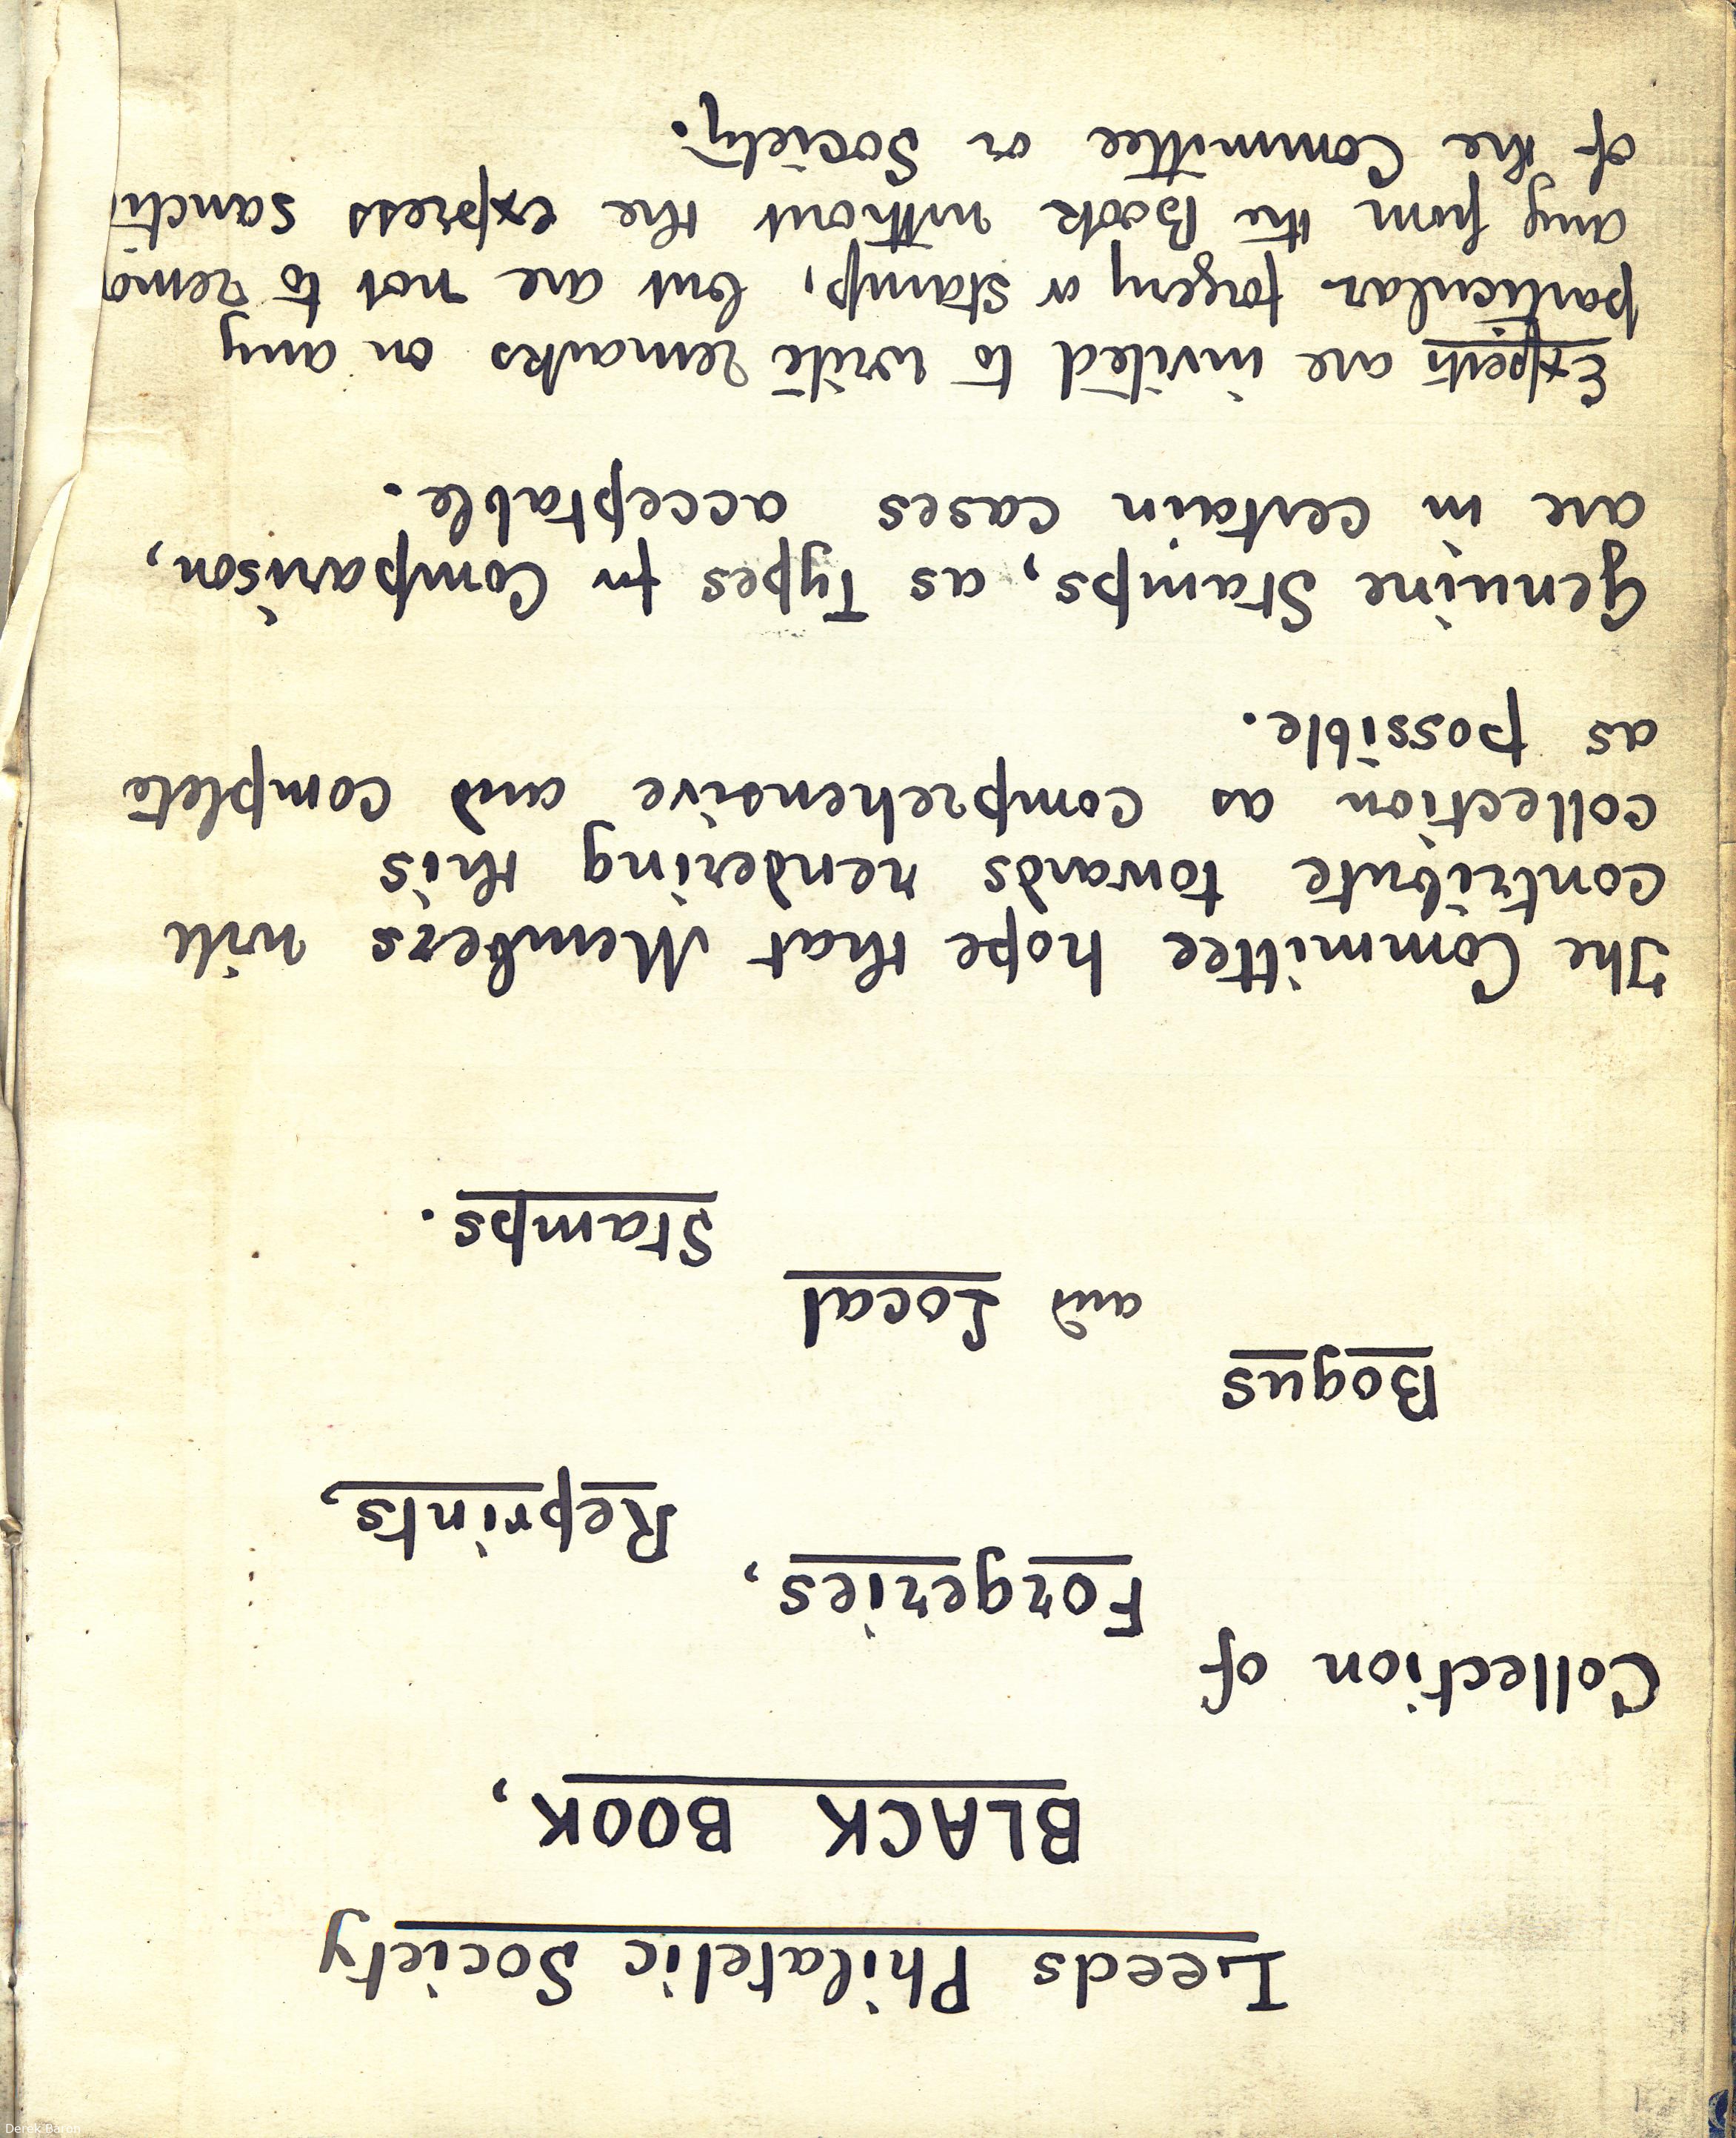 Leeds Philatelic Society
BLACK BOOK,
Collection of
Forgeries,
Reprints,
Bogus
and Local
Stamps.
The Committee hope that Members will
contribute towards rendering this
collection as comprehensive and complete
as possible.
Genuine Stamps, as Types for Comparison,
are in certain cases acceptable.
Experts are invited to write remarks on any
particular forgery or stamp, but are not to remo
any from the Book without the express sancti
of the Committee or Society.
Derek Baron